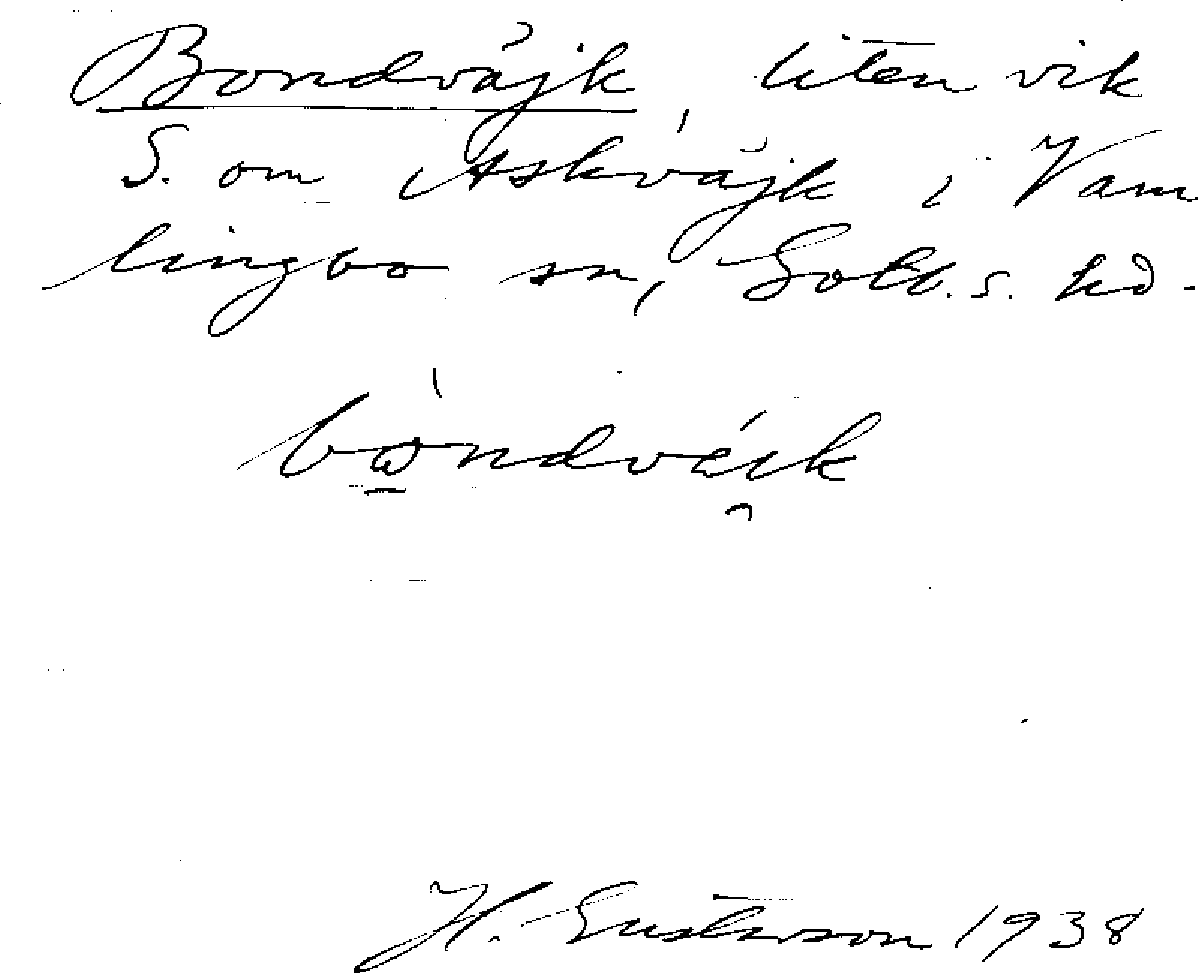 Bondvåjk, liten vik
S. om Askvåjk i Vam
lingbo sn, Gotl. s. hd.
H. Gustavson 1938